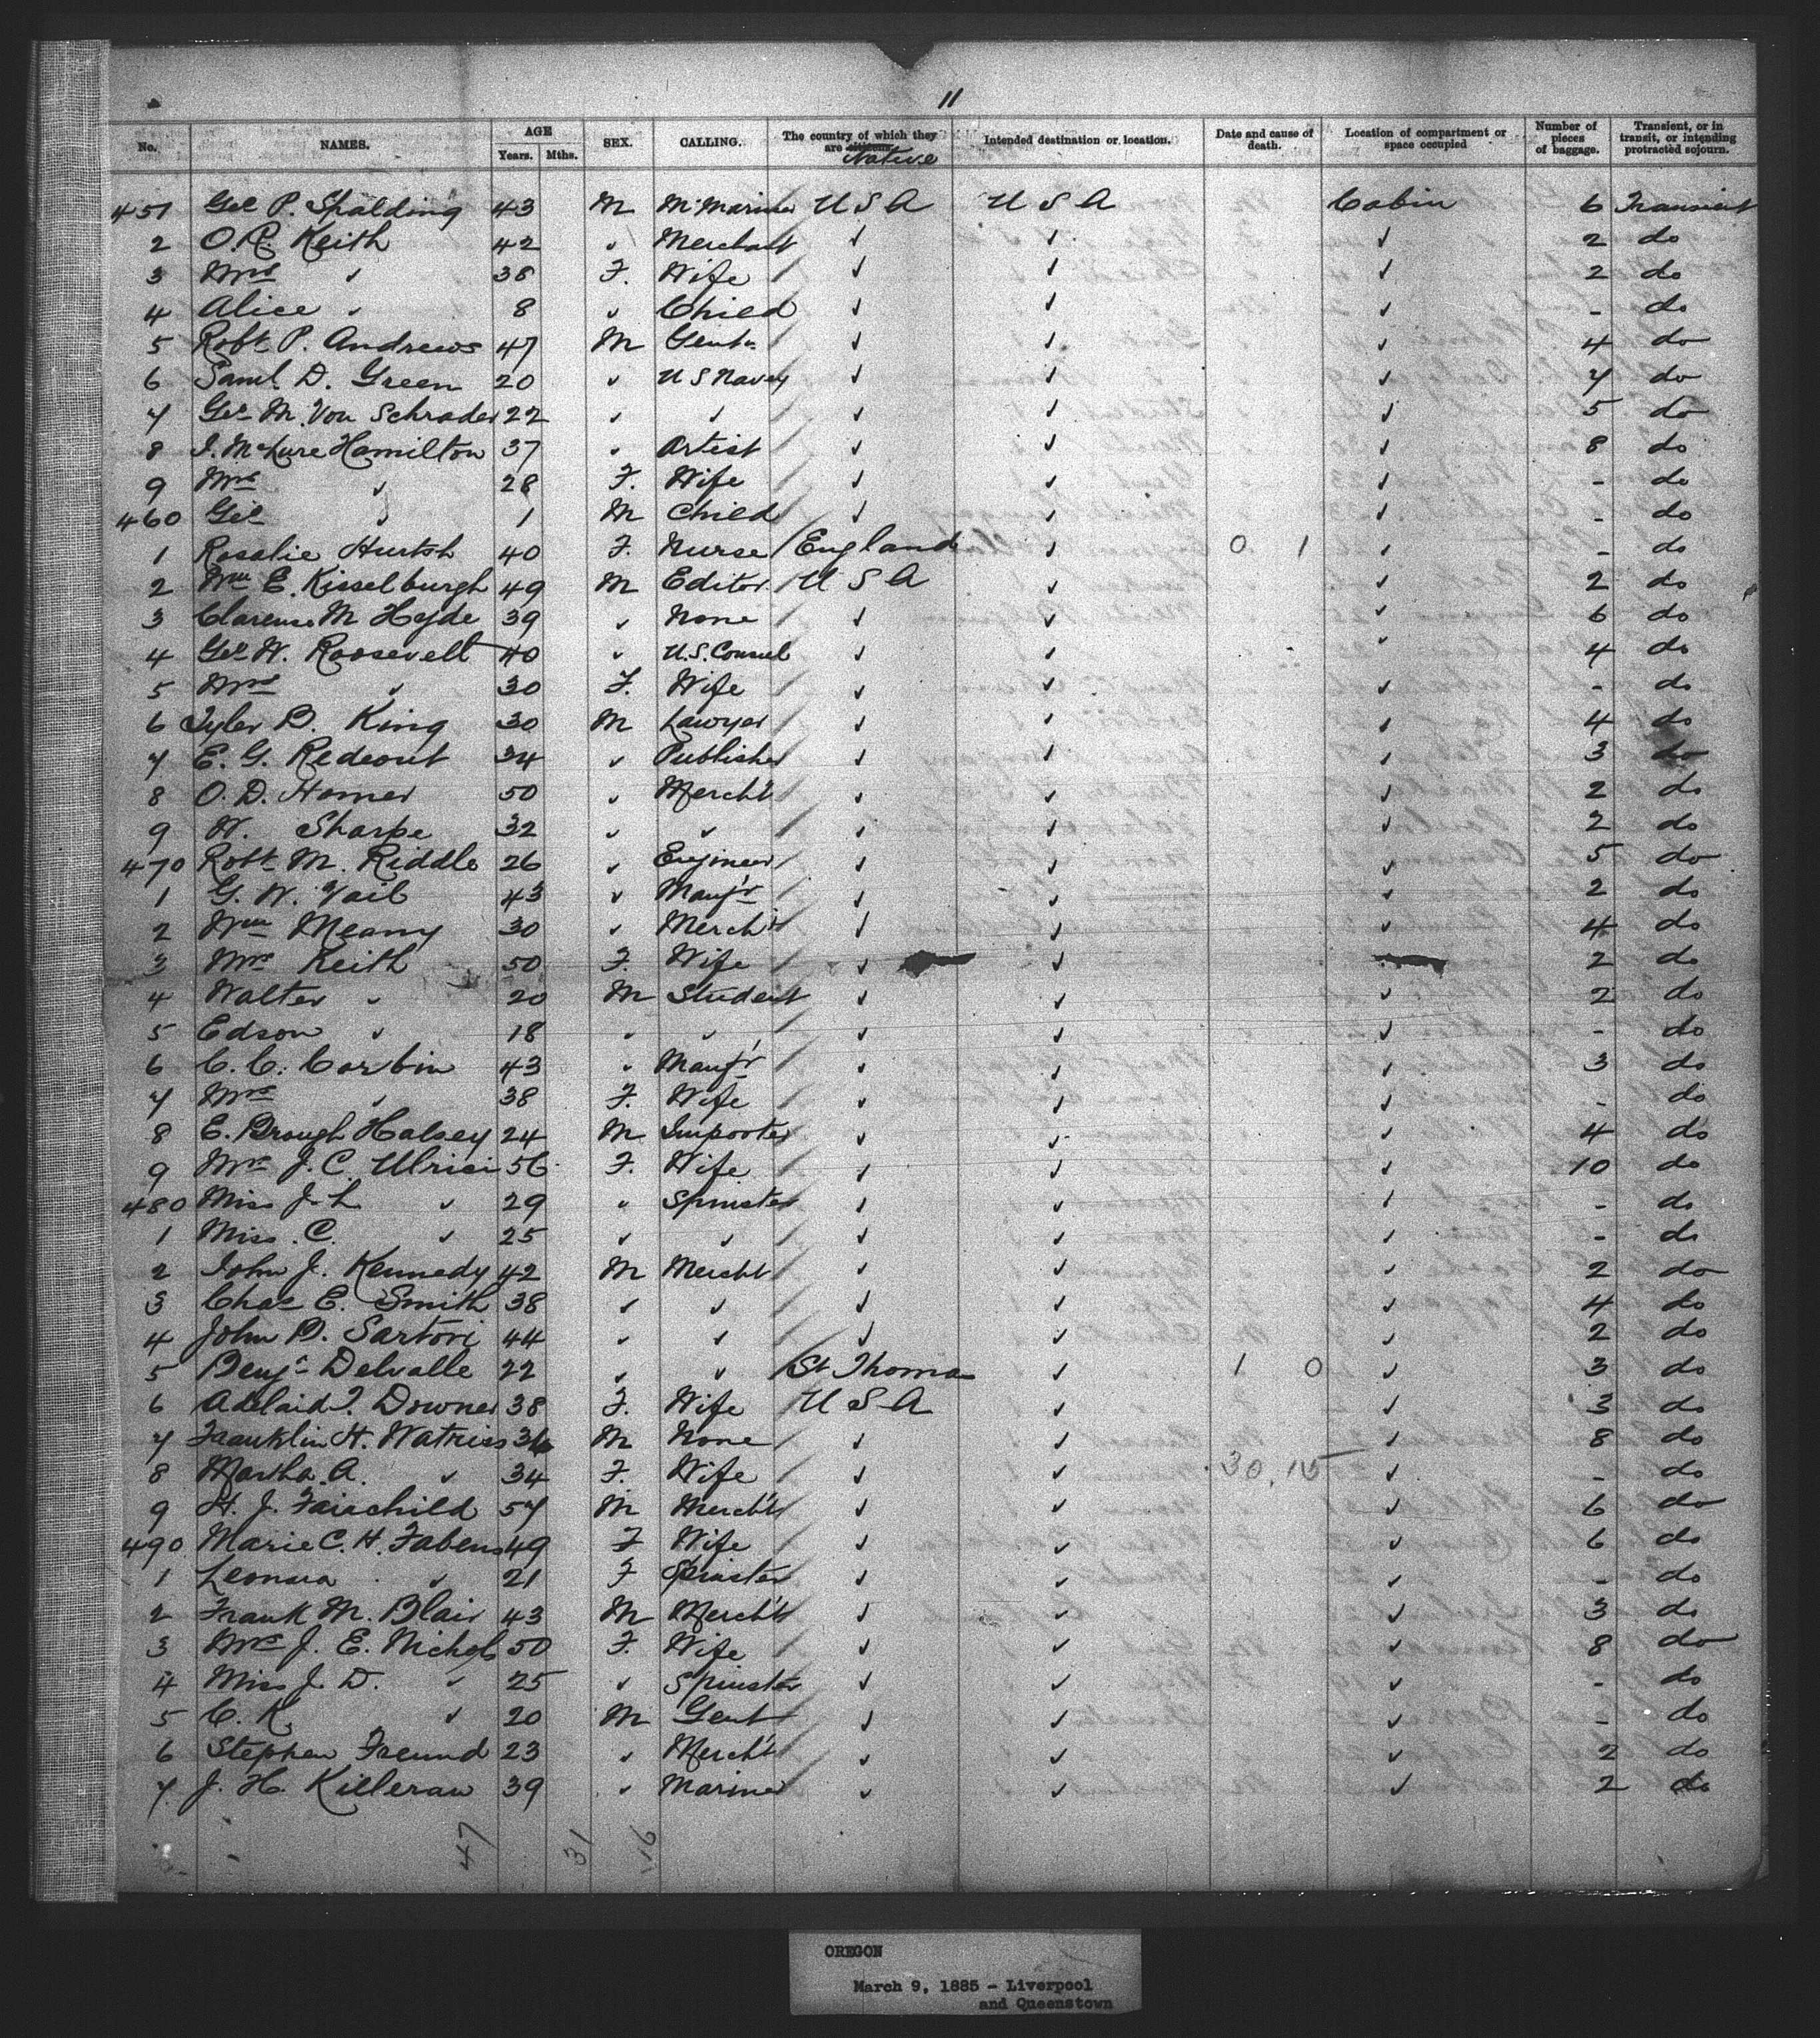 11
No. NAMES. AGE Years. Mths. SEX. CALLING. The country of which they are citizens. Native Intended destination or location. Date and cause of death. Location of compartment or space occupied Number of pieces of baggage. Transient, or in transit, or intending protracted sojourn.
451 Geo P. Spalding 43 M M. Mariner U S A U S A Cabin 6 Transient
2 O. R. Keith 42 " Merchant ✓ ✓ ✓ 2 do
3 Mrs ✓ 38 F. Wife ✓ ✓ ✓ 2 do
4 Alice ✓ 8 ✓ Child ✓ ✓ ✓ - do
5 Robt. P. Andrews 47 M Gentn ✓ ✓ ✓ 4 do
6 Saml. D. Green 20 ✓ U S Navy ✓ ✓ ✓ 7 do
7 Geo M. Von Schrader 22 ✓ ✓ ✓ ✓ ✓ 5 do
8 J. McLure Hamilton 37 ✓ Artist ✓ ✓ ✓ 8 do
9 Mrs ✓ 28 F. Wife ✓ ✓ ✓ - do
460 Geo ✓ 1 M Child ✓ ✓ ✓ - do
1 Rosalie 40 F. Nurse England ✓ 0 1 ✓ - do
2 Wm E. Kisselburgh 49 M Editor U S A ✓ ✓ 2 do
3 Clarence M Hyde 39 ✓ None ✓ ✓ ✓ 6 do
4 Geo W. Roosevelt 40 ✓ U.S. Consul ✓ ✓ ✓ 4 do
5 Mrs ✓ 30 F. Wife ✓ ✓ ✓ - do
6 Tyler B. King 30 M Lawyer ✓ ✓ ✓ 4 do
7 E. G. Redeout 34 ✓ Publisher ✓ ✓ ✓ 3 do
8 O. D. Homer 50 ✓ Merch't ✓ ✓ ✓ 2 do
9 W. Sharpe 32 ✓ ✓ ✓ ✓ ✓ 2 do
470 Robt. M. Riddle 26 ✓ Engineer ✓ ✓ ✓ 5 do
1 G. W. Vail 43 ✓ Manf'r ✓ ✓ ✓ 2 do
2 Wm Meany 30 ✓ Merch't ✓ ✓ ✓ 4 do
3 Mrs Keith 50 F. Wife ✓ ✓ 2 do
4 Walter ✓ 20 M Student ✓ ✓ ✓ 2 do
5 Edson ✓ 18 ✓ ✓ ✓ ✓ ✓ - do
6 C. C. Corbin 43 ✓ Manf'r ✓ ✓ ✓ 3 do
7 Mrs ✓ 38 F. Wife ✓ ✓ ✓ - do
8 E. Brough Halsey 24 M Importer ✓ ✓ ✓ 4 do
9 Mrs J. C. Ulrici 56 F. Wife ✓ ✓ ✓ 10 do
480 Miss J. L ✓ 29 ✓ Spinster ✓ ✓ ✓ - do
1 Miss C. ✓ 25 ✓ ✓ ✓ ✓ ✓ - do
2 John J. Kennedy 42 M Mercht ✓ ✓ ✓ 2 do
3 Chas E. Smith 38 ✓ ✓ ✓ ✓ ✓ 4 do
4 John B. Sartori 44 ✓ ✓ ✓ ✓ ✓ 2 do
5 Benj. Delvalle 22 ✓ ✓ St Thomas ✓ 1 0 ✓ 3 do
6 Adelaid T. Downer 38 F. Wife U S A ✓ ✓ 3 do
7 Franklin H. Watriss 36 M None ✓ ✓ ✓ 8 do
8 Martha A. ✓ 34 F. Wife ✓ ✓ 30,15 ✓ - do
9 H. J. Fairchild 57 M Merch't ✓ ✓ ✓ 6 do
490 Marie C. H. Fabens 49 F Wife ✓ ✓ ✓ 6 do
1 Leonora ✓ 21 F Spinster ✓ ✓ ✓ - do
2 Frank M. Blair 43 M Merch't ✓ ✓ ✓ 3 do
3 Mrs J. E. Nichols 50 F. Wife ✓ ✓ ✓ 8 do
4 Miss J. D. ✓ 25 ✓ Spinster ✓ ✓ ✓ - do
5 C. K. ✓ 20 M Gent ✓ ✓ ✓ - do
6 Stephen Freund 23 ✓ Merch't ✓ ✓ ✓ 2 do
7. J. H. Killeran 39 ✓ Mariner ✓ ✓ ✓ 2 do
47 31 16
OREGON
March 9, 1885 - Liverpool
and Queenstown